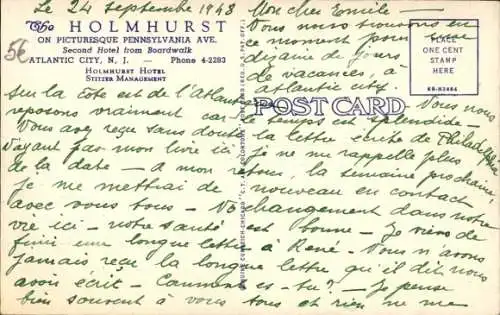 Le 24 septembre 1948
Mon cher Emile -
The HOLMHURST
ON PICTURESQUE PENNSYLVANIA AVE.
Second Hotel from Boardwalk
ATLANTIC CITY, N. J. — Phone 4-2283
HOLMHURST HOTEL
STITZER MANAGEMENT
5€
Nous nous trouvons en
ce moment pour une
dizaine de jours
de vacances, à
atlantic city.
PLACE
ONE CENT
STAMP
HERE
8B-H2484
POST CARD
Sur la Côte est de l'Atlantique Nous nous
reposons vraiment car le temps est splendide -
Vous avez reçu sans doute la lettre écrite de Philadelphie
N'ayant pas mon livre ici je ne me rappelle plus
de la date - a mon retour, la semaine prochaine,
je me mettrai de nouveau en contact
avec vous tous - changement dans notre
vie ici - notre santé est bonne - Je viens de
finir une longue lettre à René. Vous n'avons
jamais reçu la longue lettre qu'il dit nous
avoir écrit - Comment es-tu? - Je pense
bien souvent à vous tous et rien ne me
GENUINE CURTEICH-CHICAGO "C.T. ART-COLORTONE" POST CARD (REG. U.S. PAT. OFF.)